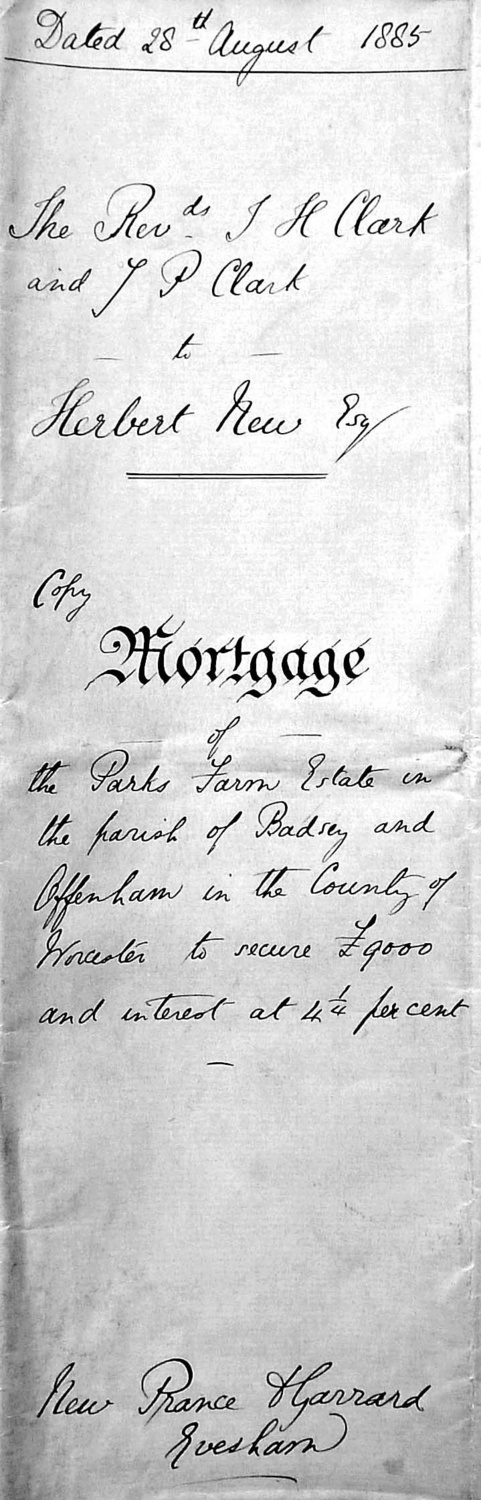 Dated 28th August 1885
The Revds J H Clark
and J P Clark
to
Herbert New Esq
Copy
Mortgage
of
the Parks Farm Estate in
the parish of Badsey and
Offenham in the County of
Worcester to secure £9000
and interest at 4 1/4 per cent
New Prance & Garrard
Evesham